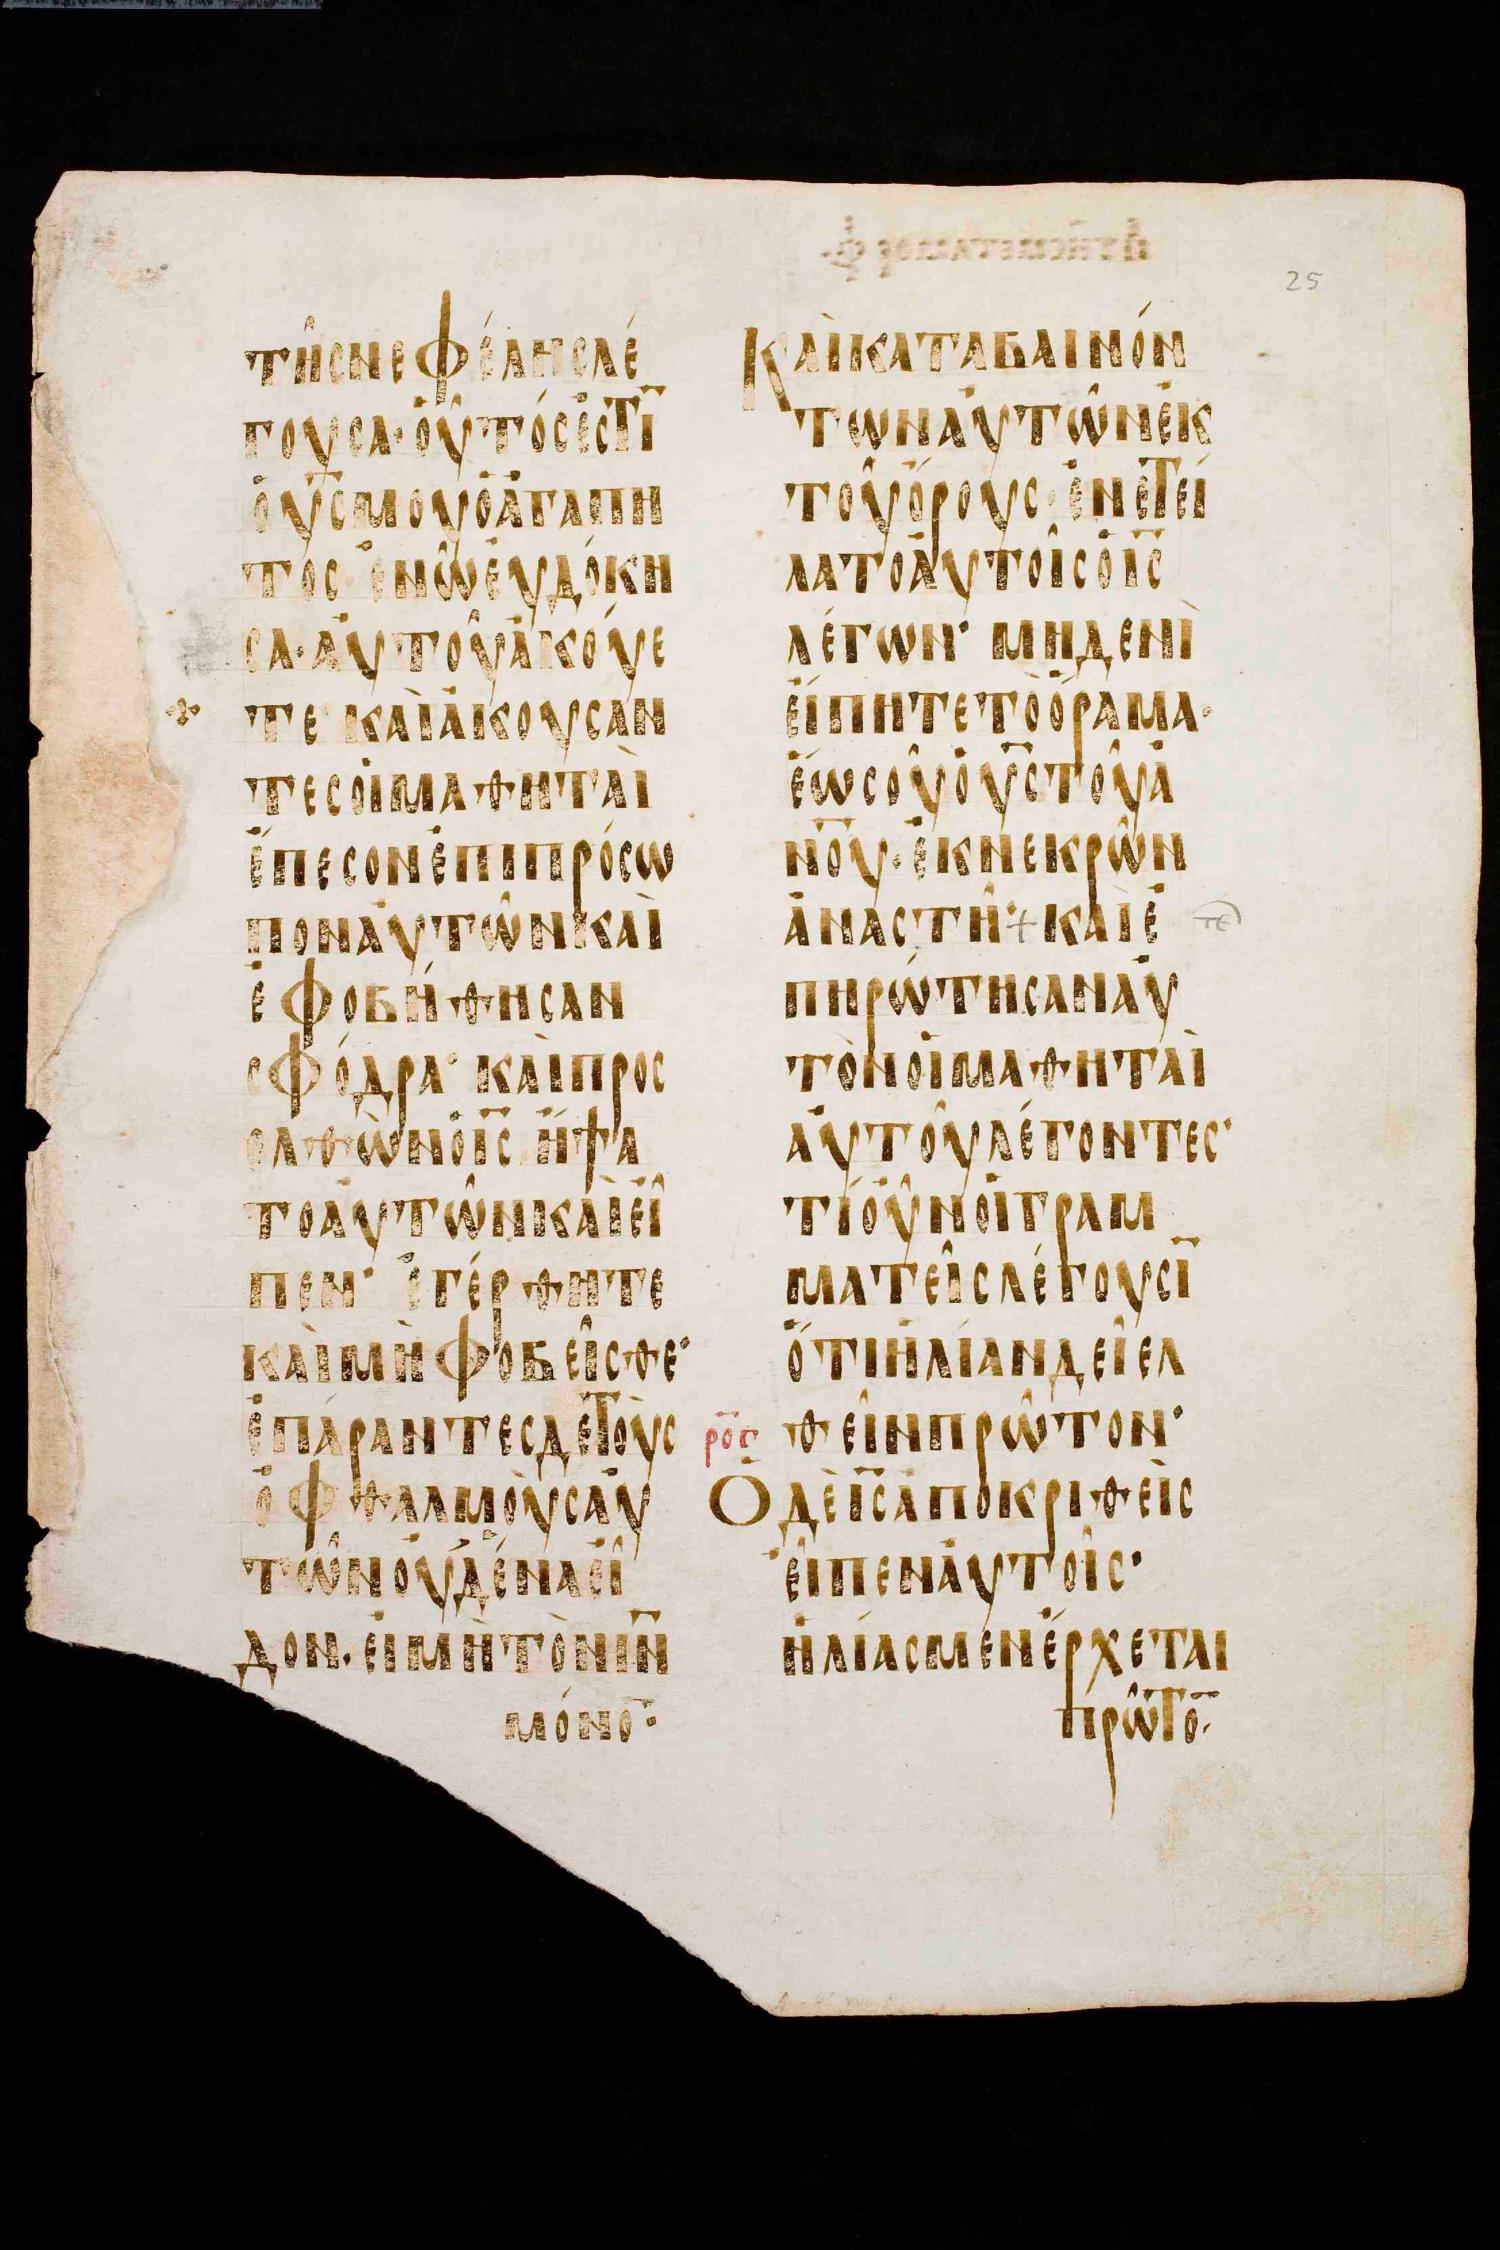 25
τῆσνεφέλησλέ
γουσα· ὀῦτόσἐστῑ
ὁῡσ̄μουὁἀγαπη
τός· ἐνῶἐυδόκη
σα· ἀυτοῦἀκόυε
τε καὶἀκουσαν
τεσοἱμαθηταὶ
ἔπεσονἐπιπρόσω
ποναὐτῶνκαὶ
ἐφοβήθησαν
σφόδρα· καὶπροσ
ελθὼνὁῑσ̄ ἥψα
τοἀυτῶνκαὶεἶ
πεν· ἐγέρθητε
καὶμὴφοβεῖσθε·
ἐπάραντεσδὲτοὺσ
ὀφθαλμοὺσἀυ
τῶνουδέναεἶ
δον· εἰμὴτὸνῑν̄
μόνο̄·
Καὶκαταβαινόν
τωναὐτῶνἐκ
τοῦὄρουσ· ἐνετεί
λατοἀυτοῖσὁῑσ̄
λέγων· μηδενὶ
εἴπητετὸὅραμα·
ἕωσοὗὁῡσ̄τοῦἀ
ν̄ο̄υ· ἐκνεκρῶν
ἀναστῆ·+καὶἐ
τε
πηρώτησαναὐ
τὸνοἱμαθηταὶ
ἀυτοῦλέγοντεσ·
τίοὖνοἱγραμ
ματεῖσλέγουσῑ
ὅτιἠλίανδεῖελ
θεῖνπρῶτον·
ρ̄ο̄γ̄
Ὁδὲῑσ̄ἀποκριθεὶσ
εἶπεναὐτοῖσ·
ἠλίασμὲνἔρχεται
πρῶτο̄·